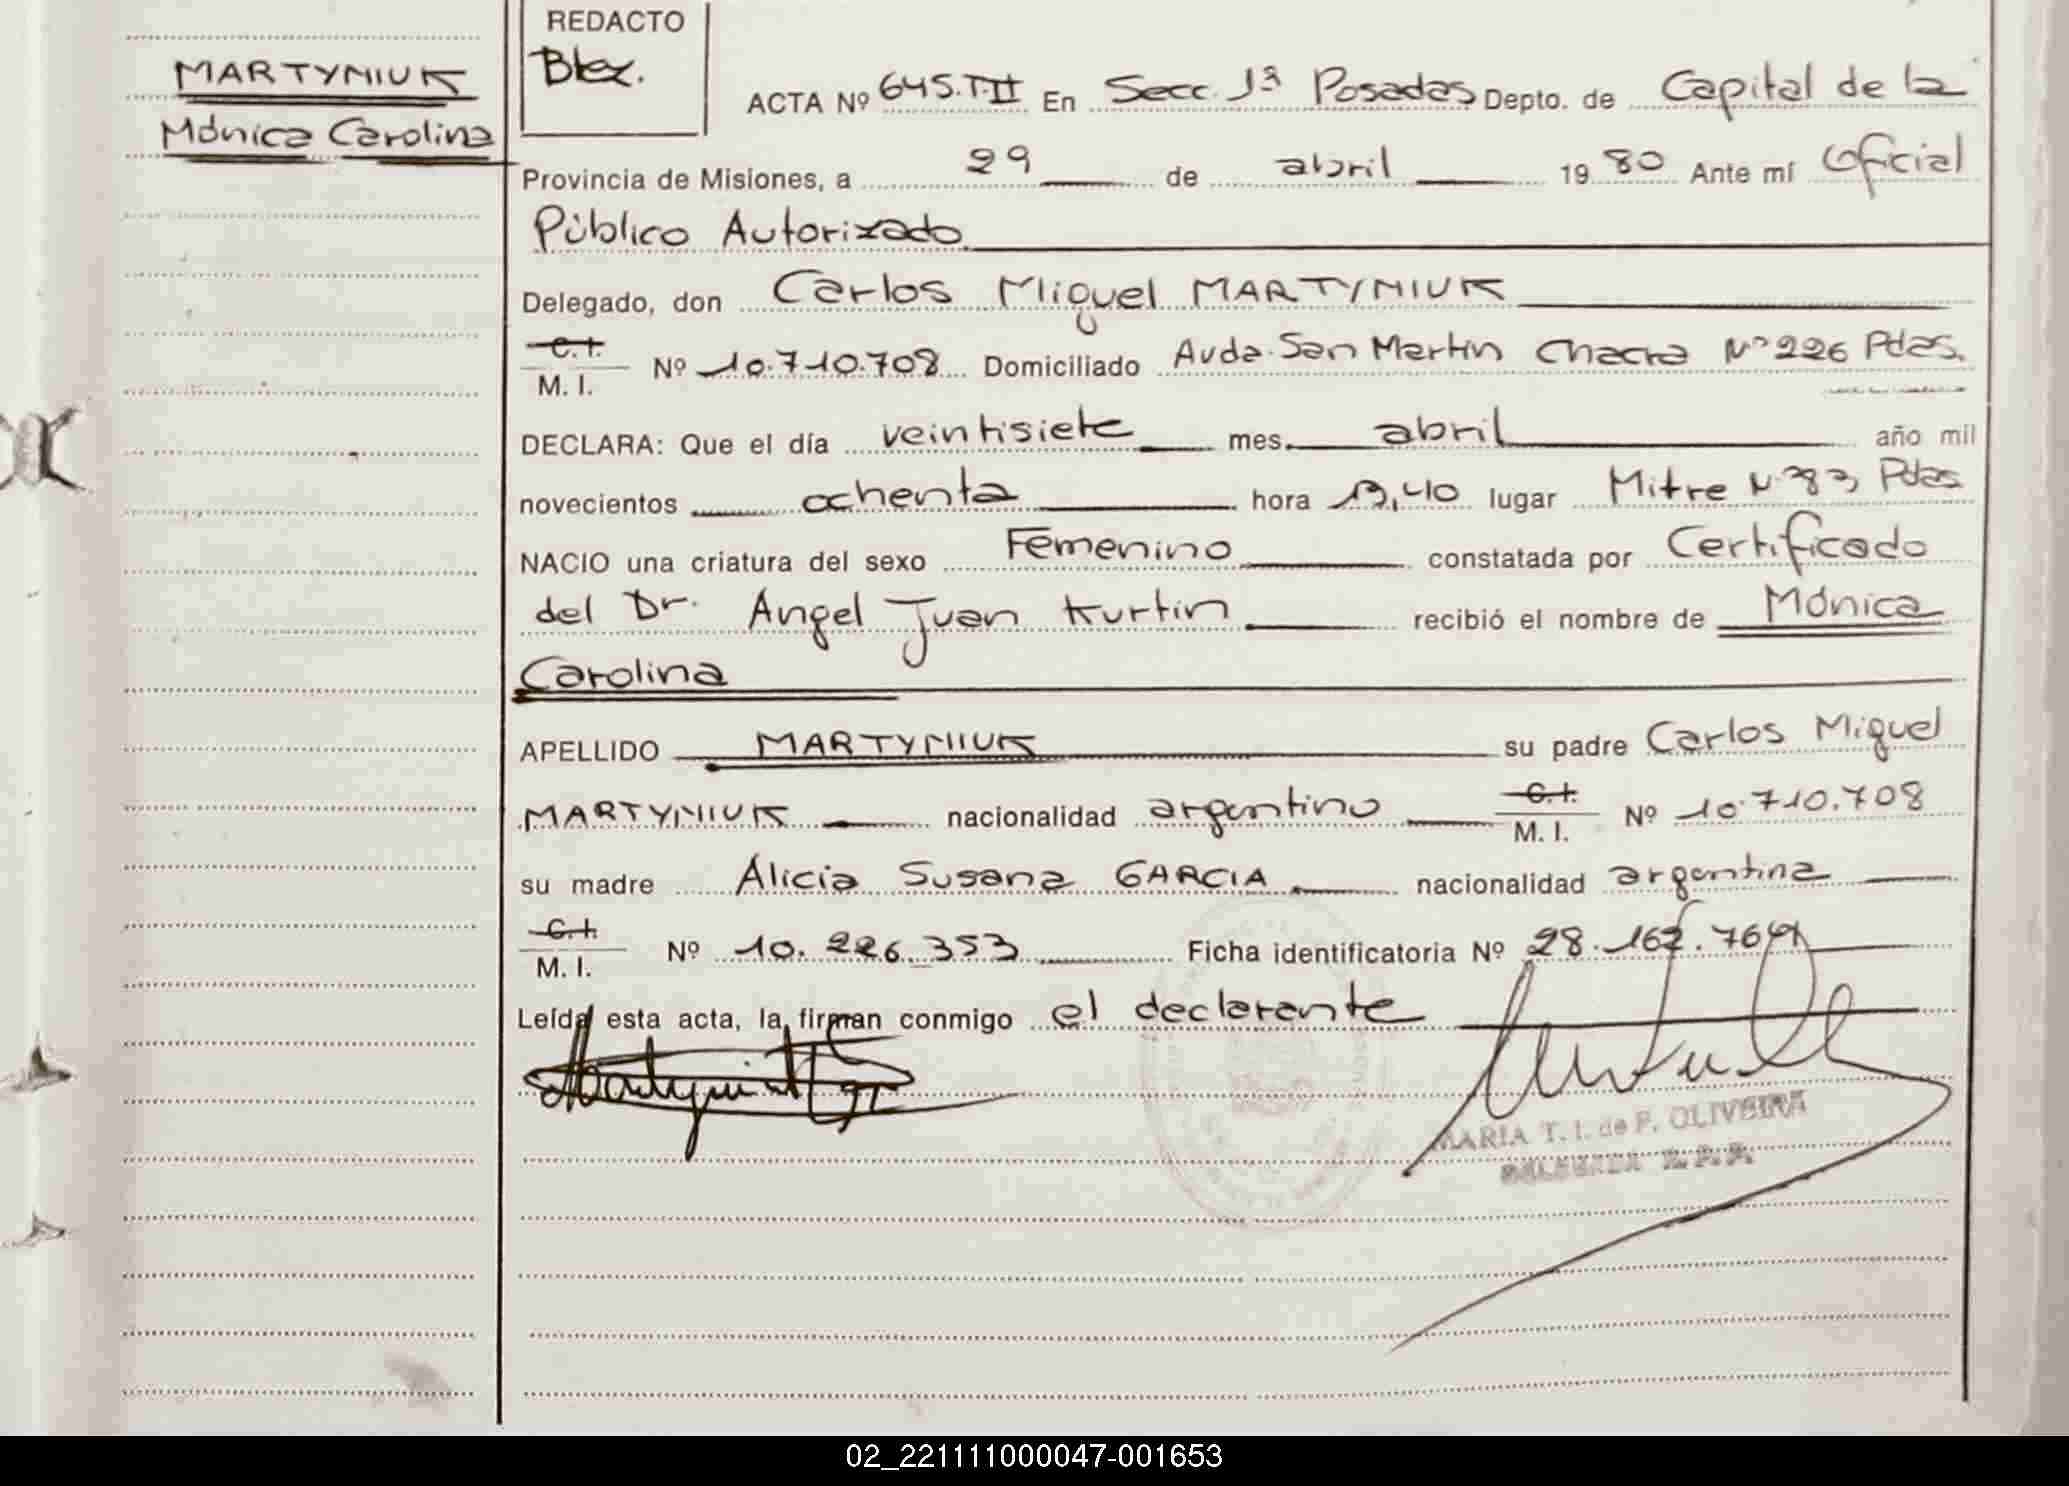 MARTYNIUK
Mónica Carolina
REDACTO
ACTA Nº 645.T.II En Secc. 1ª Posadas Depto. de Capital de la
Provincia de Misiones, a 29 de abril 1980 Ante mí Oficial
Público Autorizado
Delegado, don Carlos Miguel MARTYNIUK
C.I.
M. I. Nº 10.710.708 Domiciliado Avda. San Martin Chacra Nº 226 Pdas.
DECLARA: Que el día veintisiete mes abril año mil
novecientos ochenta hora lugar Mitre Nº 83, Pdas
NACIO una criatura del sexo Femenino constatada por Certificado
del Dr. Angel Juan Kurtin recibió el nombre de Mónica
Carolina
APELLIDO MARTYNIUK su padre Carlos Miguel
MARTYNIUK nacionalidad argentino C.I. M. I. Nº 10.710.708
su madre Alicia Susana GARCIA nacionalidad argentina
C.I.
M. I. Nº 10.226.353 Ficha identificatoria Nº
Leída esta acta, la firman conmigo el declarante
MARIA T. I. de F. OLIVEIRA
DELEGADA R. P. P.
02_221111000047-001653